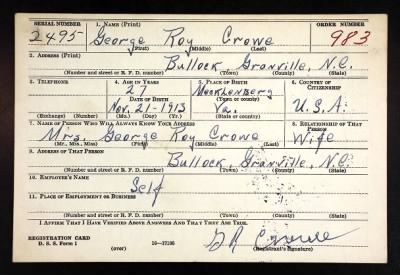 SERIAL NUMBER 1. NAME (Print) ORDER NUMBER
2495 George Roy Crowe 983
(First) (Middle) (Last)
2. ADDRESS (Print)
Bullock, Granville, N.C.
(Number and street or R. F. D. number) (Town) (County) (State)
3. TELEPHONE 4. AGE IN YEARS 5. PLACE OF BIRTH 6. COUNTRY OF CITIZENSHIP
27 Mecklenberg
DATE OF BIRTH (Town or county)
Nov. 21-1913 Va. U.S.A.
(Exchange) (Number) (Mo.) (Day) (Yr.) (State or country)
7. NAME OF PERSON WHO WILL ALWAYS KNOW YOUR ADDRESS 8. RELATIONSHIP OF THAT PERSON
Mrs. George Roy Crowe Wife
(Mr., Mrs., Miss) (First) (Middle) (Last)
9. ADDRESS OF THAT PERSON
Bullock, Granville, N.C.
(Number and street or R. F. D. number) (Town) (County) (State)
10. EMPLOYER'S NAME
Self
11. PLACE OF EMPLOYMENT OR BUSINESS
(Number and street or R. F. D. number) (Town) (County) (State)
I AFFIRM THAT I HAVE VERIFIED ABOVE ANSWERS AND THAT THEY ARE TRUE.
REGISTRATION CARD
D. S. S. Form 1 (over) 16-17105 (Registrant's signature)
G R Crowe